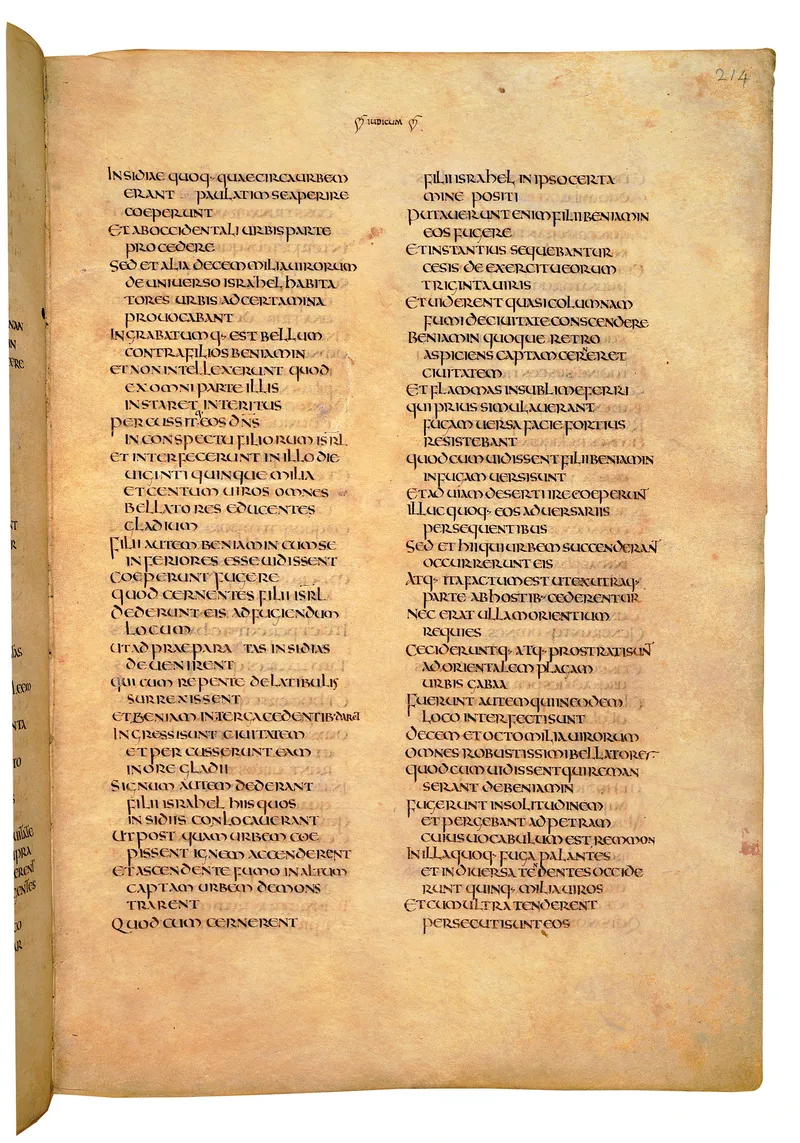 214
IUDICUM
INSIDIAE QUOQ· QUAECIRCAURBEM
ERANT PAULATIM SEAPERIRE
COEPERUNT
ETABOCCIDENTALI URBISPARTE
PROCEDERE
SED ETALIA DECEMMILIAUIRORUM
DEUNIUERSO ISRAHEL HABITA
TORES URBIS ADCERTAMINA
PROUOCABANT
INGRABATUMQ· EST BELLUM
CONTRAFILIOS BENIAMIN
ETNONINTELLEXERUNT QUOD
EXOMNI PARTE ILLIS
INSTARET INTERITUS
PERCUSSITQ·EOS DNS
INCONSPECTU FILIORUM ISRL
ET INTERFECERUNT INILLO DIE
UIGINTI QUINQUE MILIA
ETCENTUM UIROS OMNES
BELLATORES EDUCENTES
GLADIUM
FILII AUTEM BENIAMIN CUMSE
INFERIORES ESSEUIDISSENT
COEPERUNT FUGERE
QUOD CERNENTES FILII ISRL
DEDERUNT EIS ADFUGIENDUM
LOCUM
UTAD PRAEPARA TAS INSIDIAS
DEUENIRENT
QUI CUM REPENTE DELATIBULIS
SURREXISSENT
ETBENIAM INTERGACEDENTIB·DARET
INGRESSISUNT CIUITATEM
ETPERCUSSERUNT EAM
INORE GLADII
SIGNUM AUTEM DEDERANT
FILII ISRAHEL HIIS QUOS
INSIDIIS CONLOCAUERANT
UTPOST QUAM URBEM COE
PISSENT IGNEM ACCENDERENT
ETASCENDENTE FUMO INALTUM
CAPTAM URBEM DEMONS
TRARENT
QUOD CUM CERNERENT
FILII ISRAHEL INIPSOCERTA
MINE POSITI
PUTAUERUNTENIM FILIIBENIAMIN
EOS FUGERE
ETINSTANTIUS SEQUEBANTUR
CESIS DE EXERCITUEORUM
TRIGINTAUIRIS
ETUIDERENT QUASI COLUMNAM
FUMI DECIUITATECONSCENDERE
BENIAMIN QUOQUE RETRO
ASPICIENS CAPTAM CERNERET
CIUITATEM
ETFLAMMAS INSUBLIMEFERRI
QUI PRIUS SIMULAUERANT
FUGAM UERSA FACIE FORTIUS
RESISTEBANT
QUODCUM UIDISSENTFILIIBENIAMIN
INFUGAM UERSISUNT
ETAD UIAM DESERTI IRECOEPERUNT
ILLUCQUOQ· EOS ADVERSARIIS
PERSEQUENTIBUS
SED ET HIIQUIURBEMSUCCENDERANT
OCCURRERUNT EIS
ATQ· ITAFACTUMEST UTEXUTRAQ·
PARTE ABHOSTIB·CEDERENTUR
NEC ERAT ULLAMORIENTIUM
REQUIES
CECIDERUNTQ· ATQ· PROSTRATISUNT
ADORIENTALEM PLAGAM
URBIS GABAA
FUERUNT AUTEM QUIINEODEM
LOCO INTERFECTISUNT
DECEM ETOCTO MILIAUIRORUM
OMNES ROBUSTISSIMIBELLATORES
QUODCUM UIDISSENTQUIREMAN
SERANT DEBENIAMIN
FUGERUNT INSOLITUDINEM
ETPERGEBANT ADPETRAM
CUIUSUOCABULUMEST REMMON
INILLAQUOQ· FUGA PALANTES
ET INDIUERSA TENDENTES OCCIDE
RUNT QUINQ· MILIAUIROS
ETCUMULTRA TENDERENT
PERSECUTISUNTEOS